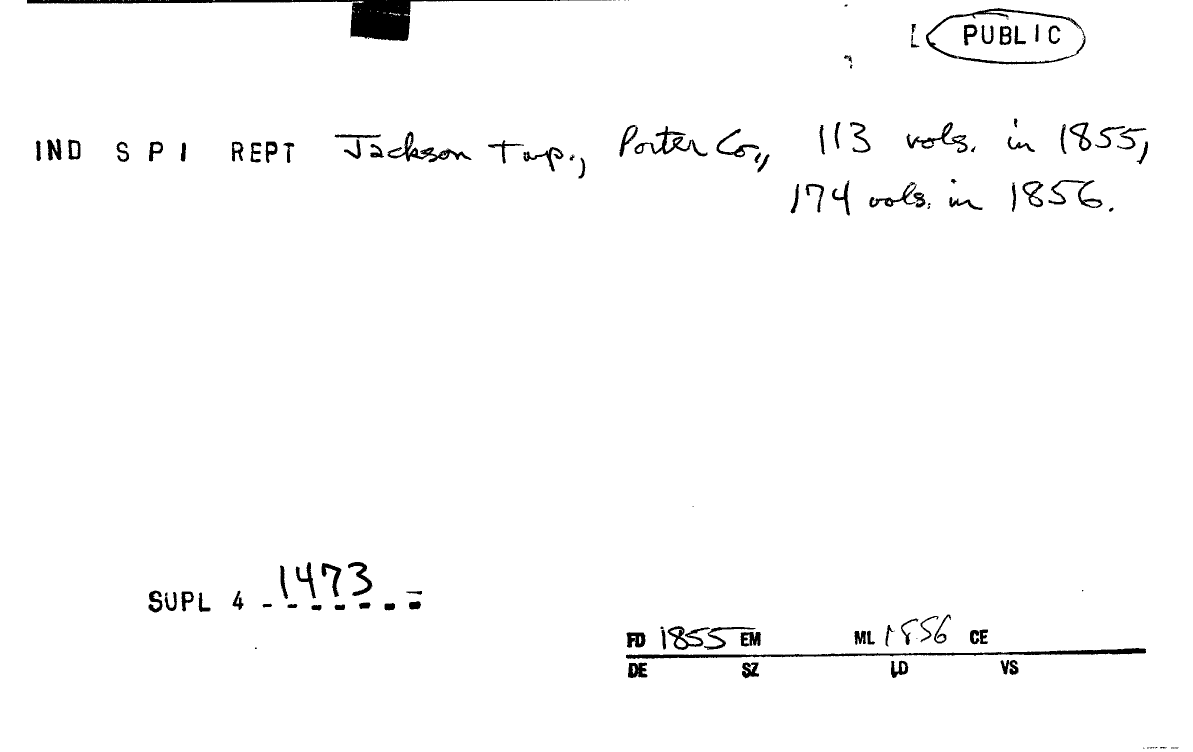 PUBLIC
IND S P I REPT Jackson Twp., Porter Co., 113 vols. in 1855,
174 vols. in 1856.
SUPL 4 1473
FD 1855 EM ML 1856 CE
DE SZ LD VS